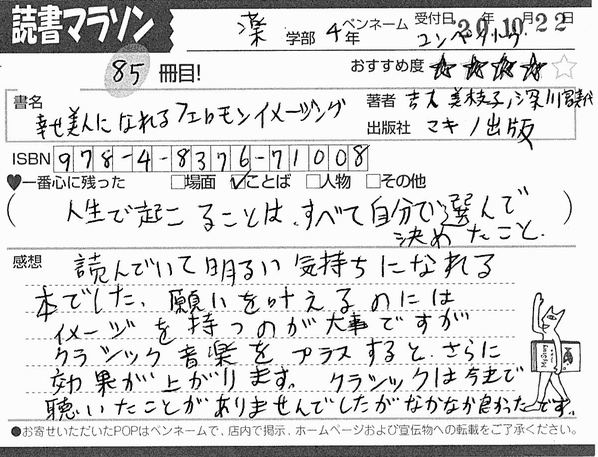 読書マラソン
薬 学部 4年 ペンネーム 受付日 20年10月22日
コンペイトウ
85 冊目!
おすすめ度 ★★★★☆
書名 幸せ美人になれるフェロモンイメージング
著者 吉丸美枝子,深川富美代
出版社 マキノ出版
ISBN 978-4-8376-71008
♥一番心に残った □場面 ☑ことば □人物 □その他
(人生で起こることは、すべて自分で選んで
決めたこと.)
感想 読んでいて明るい気持ちになれる
本でした。願いを叶えるのには
イメージを持つのが大事ですが
クラシック音楽をプラスすると、さらに
効果が上がります。クラシックは今まで
聴いたことがありませんでしたがなかなか良かったです。
●お寄せいただいたPOPはペンネームで、店内で掲示、ホームページおよび宣伝物への転載をご了承ください。